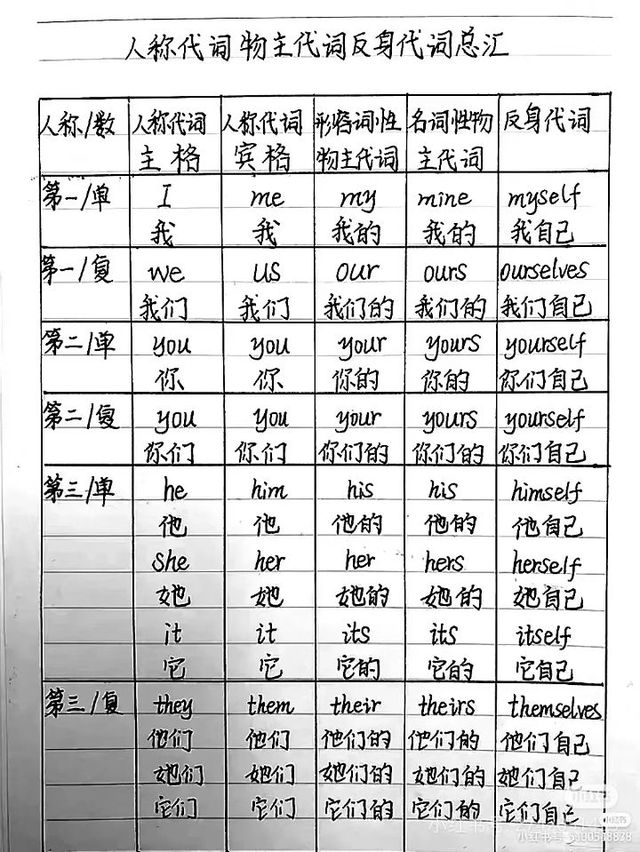 人称代词物主代词反身代词总汇
人称/数 人称代词 人称代词 形容词性 名词性物 反身代词
主格 宾格 物主代词 主代词
第一/单 I me my mine myself
我 我 我的 我的 我自己
第一/复 we us our ours ourselves
我们 我们 我们的 我们的 我们自己
第二/单 you you your yours yourself
你 你 你的 你的 你们自己
第二/复 you you your yours yourself
你们 你们 你们的 你们的 你们自己
第三/单 he him his his himself
他 他 他的 他的 他自己
she her her hers herself
她 她 她的 她的 她自己
it it its its itself
它 它 它的 它的 它自己
第三/复 they them their theirs themselves
他们 他们 他们的 他们的 他们自己
她们 她们 她们的 她们的 她们自己
它们 它们 它们的 它们的 它们自己
小红书